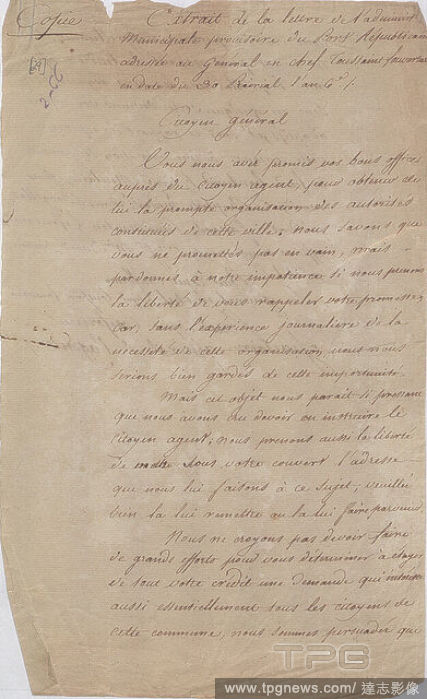 Copie
Extrait de la lettre de l'administ
Municipale provisoire du Port Republicain
adressée au Général en chef Toussaint Louverture
en date du 30 Prairial l'an 6e /.
[39]
2-66
Citoyen général
Vous nous avés promis vos bons offices
auprès du Citoyen agent, pour obtenir de
lui la prompte organisation des autorités
constituées de cette ville; nous savons que
vous ne promettés pas en vain, mais
pardonnés à notre impatience si nous prenons
la liberté de vous rappeler votre promesse,
car, sans l'expérience journaliere de la
necessité de cette organisation, nous nous
serions bien gardés de cette importunité.
Mais cet objet nous parait si pressant
que nous avons cru devoir en instruire le
Citoyen agent; nous prenons aussi la liberté
de mettre sous votre couvert l'adresse
que nous lui faisons à ce sujet; veuillés
bien la lui remettre ou la lui faire parvenir.
Nous ne croyons pas devoir faire
de grands efforts pour vous déterminer à étayer
de tout votre crédit une demande qui intéresse
aussi essentiellement tous les citoyens de
cette commune, nous sommes persuadés que
TPG
www.tpgnews.com/ 達志影像